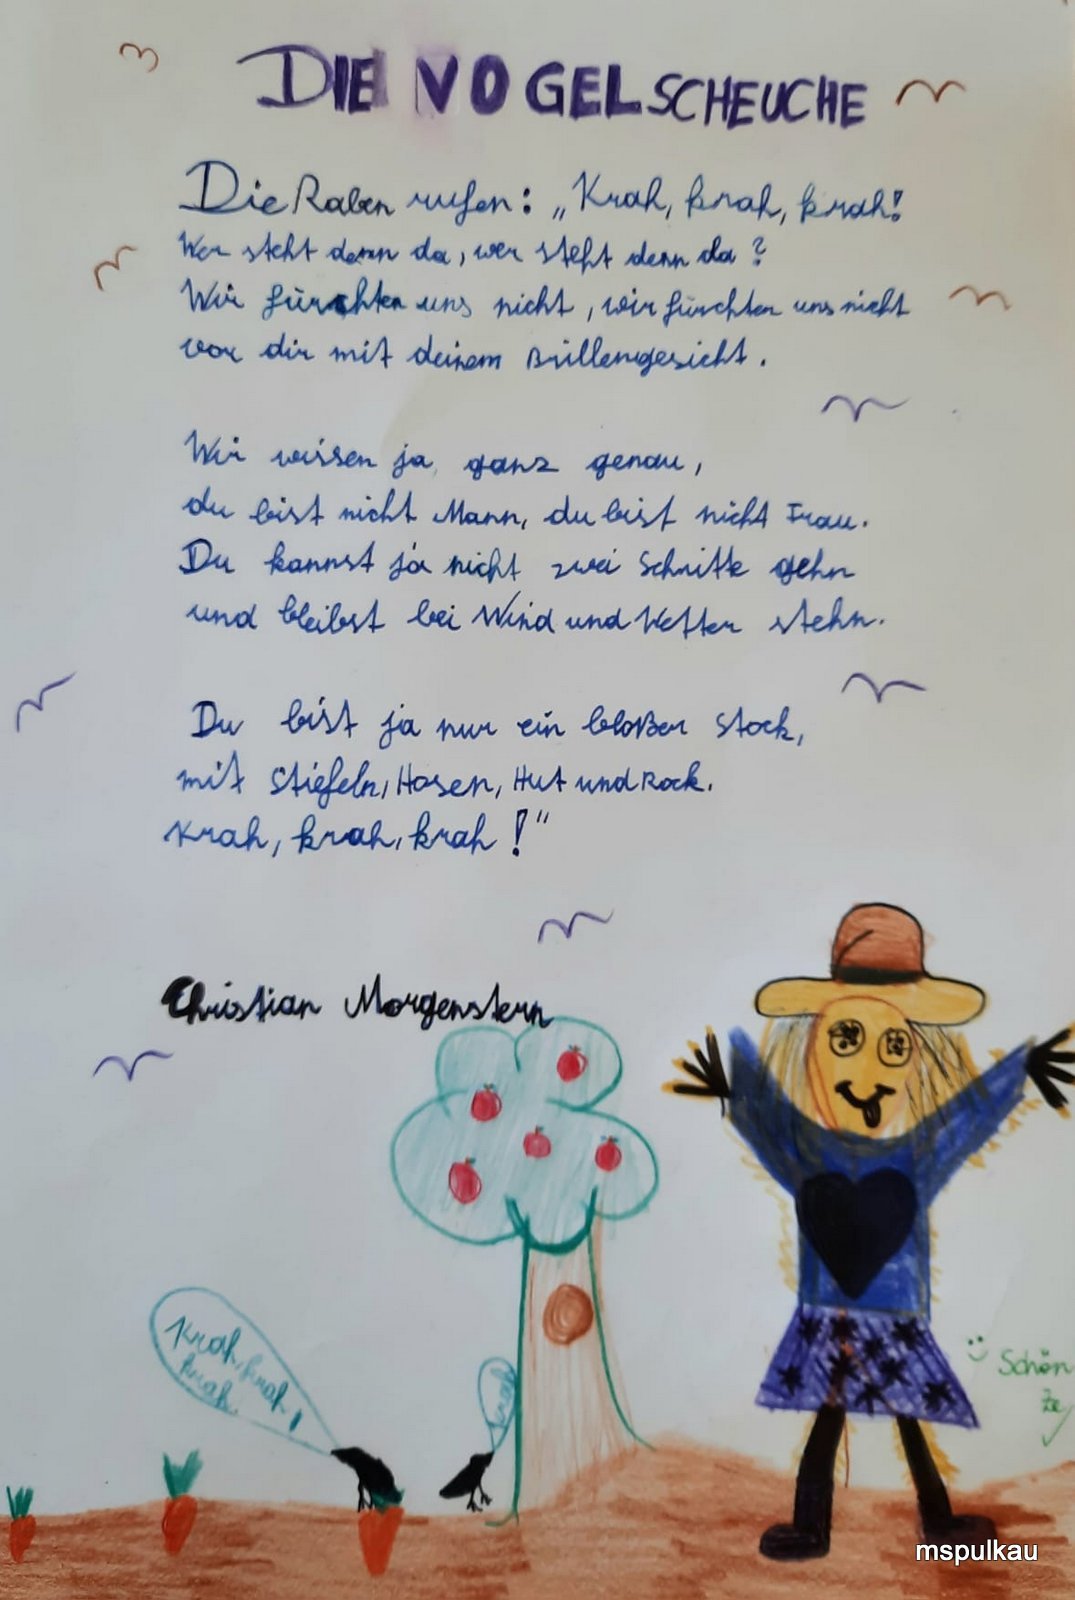 DIE VOGELSCHEUCHE
Die Raben rufen: „Krah, krah, krah!
Wer steht denn da, wer steht denn da?
Wir fürchten uns nicht, wir fürchten uns nicht
vor dir mit deinem Brillengesicht.
Wir wissen ja ganz genau,
du bist nicht Mann, du bist nicht Frau.
Du kannst ja nicht zwei Schritte gehn
und bleibst bei Wind und Wetter stehn.
Du bist ja nur ein bloßer Stock,
mit Stiefeln, Hosen, Hut und Rock.
Krah, krah, krah!"
Christian Morgenstern
Krah, krah,
krah!
Krah
Schön
mspulkau